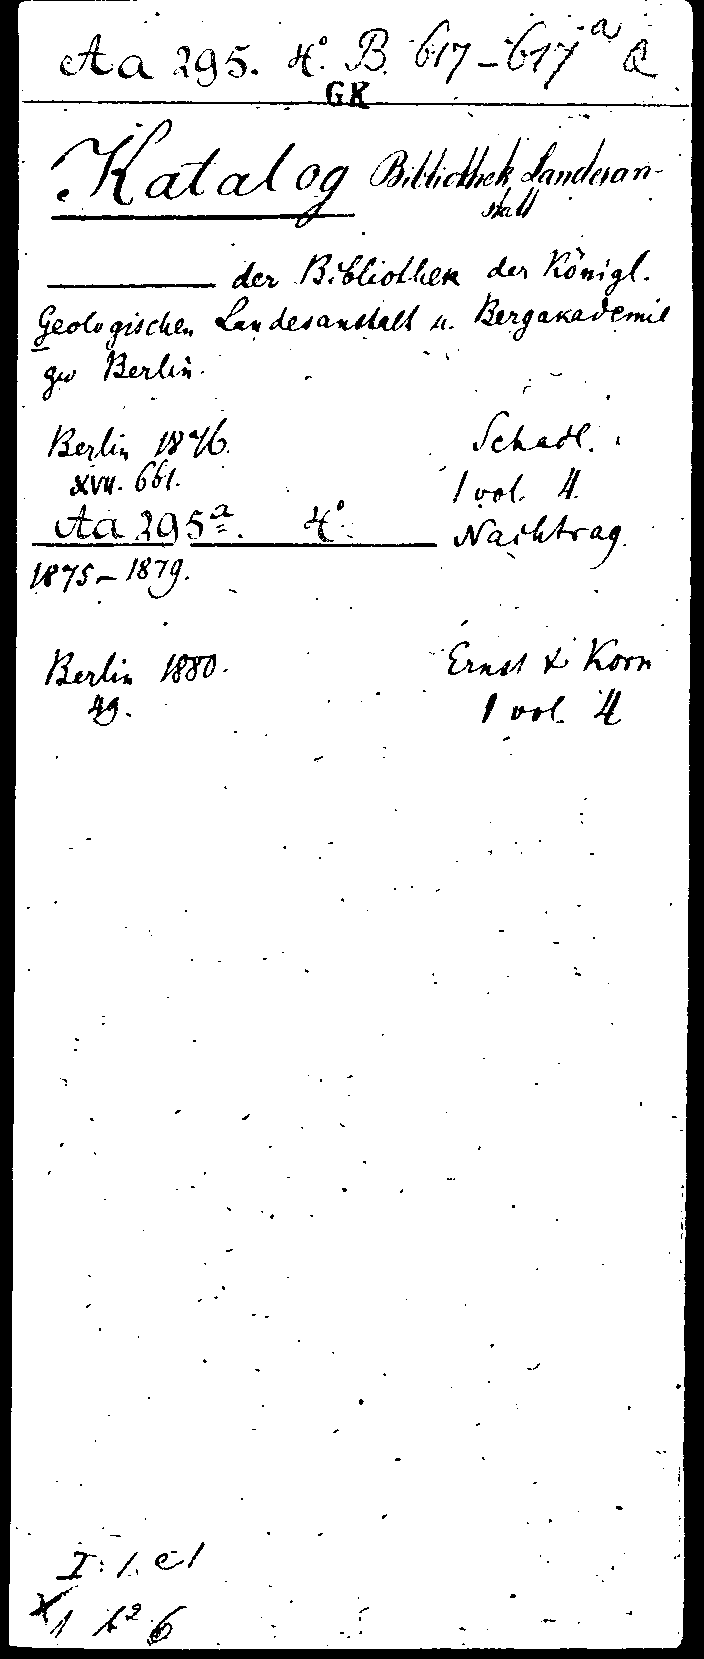 Aa 295. 4°. B. 617-617a a
GK
Katalog Bibliothek Landesan-
stalt
der Bibliothek der Königl.
Geologischen Landesanstalt u. Bergakademie
zu Berlin.
Berlin 1876. Schadl.
XVII. 661. 1 vol. 4.
Aa 295a. 4°. Nachtrag.
1875-1879.
Berlin 1880. Ernst & Korn
49. 1 vol. 4
I: 1. c 1